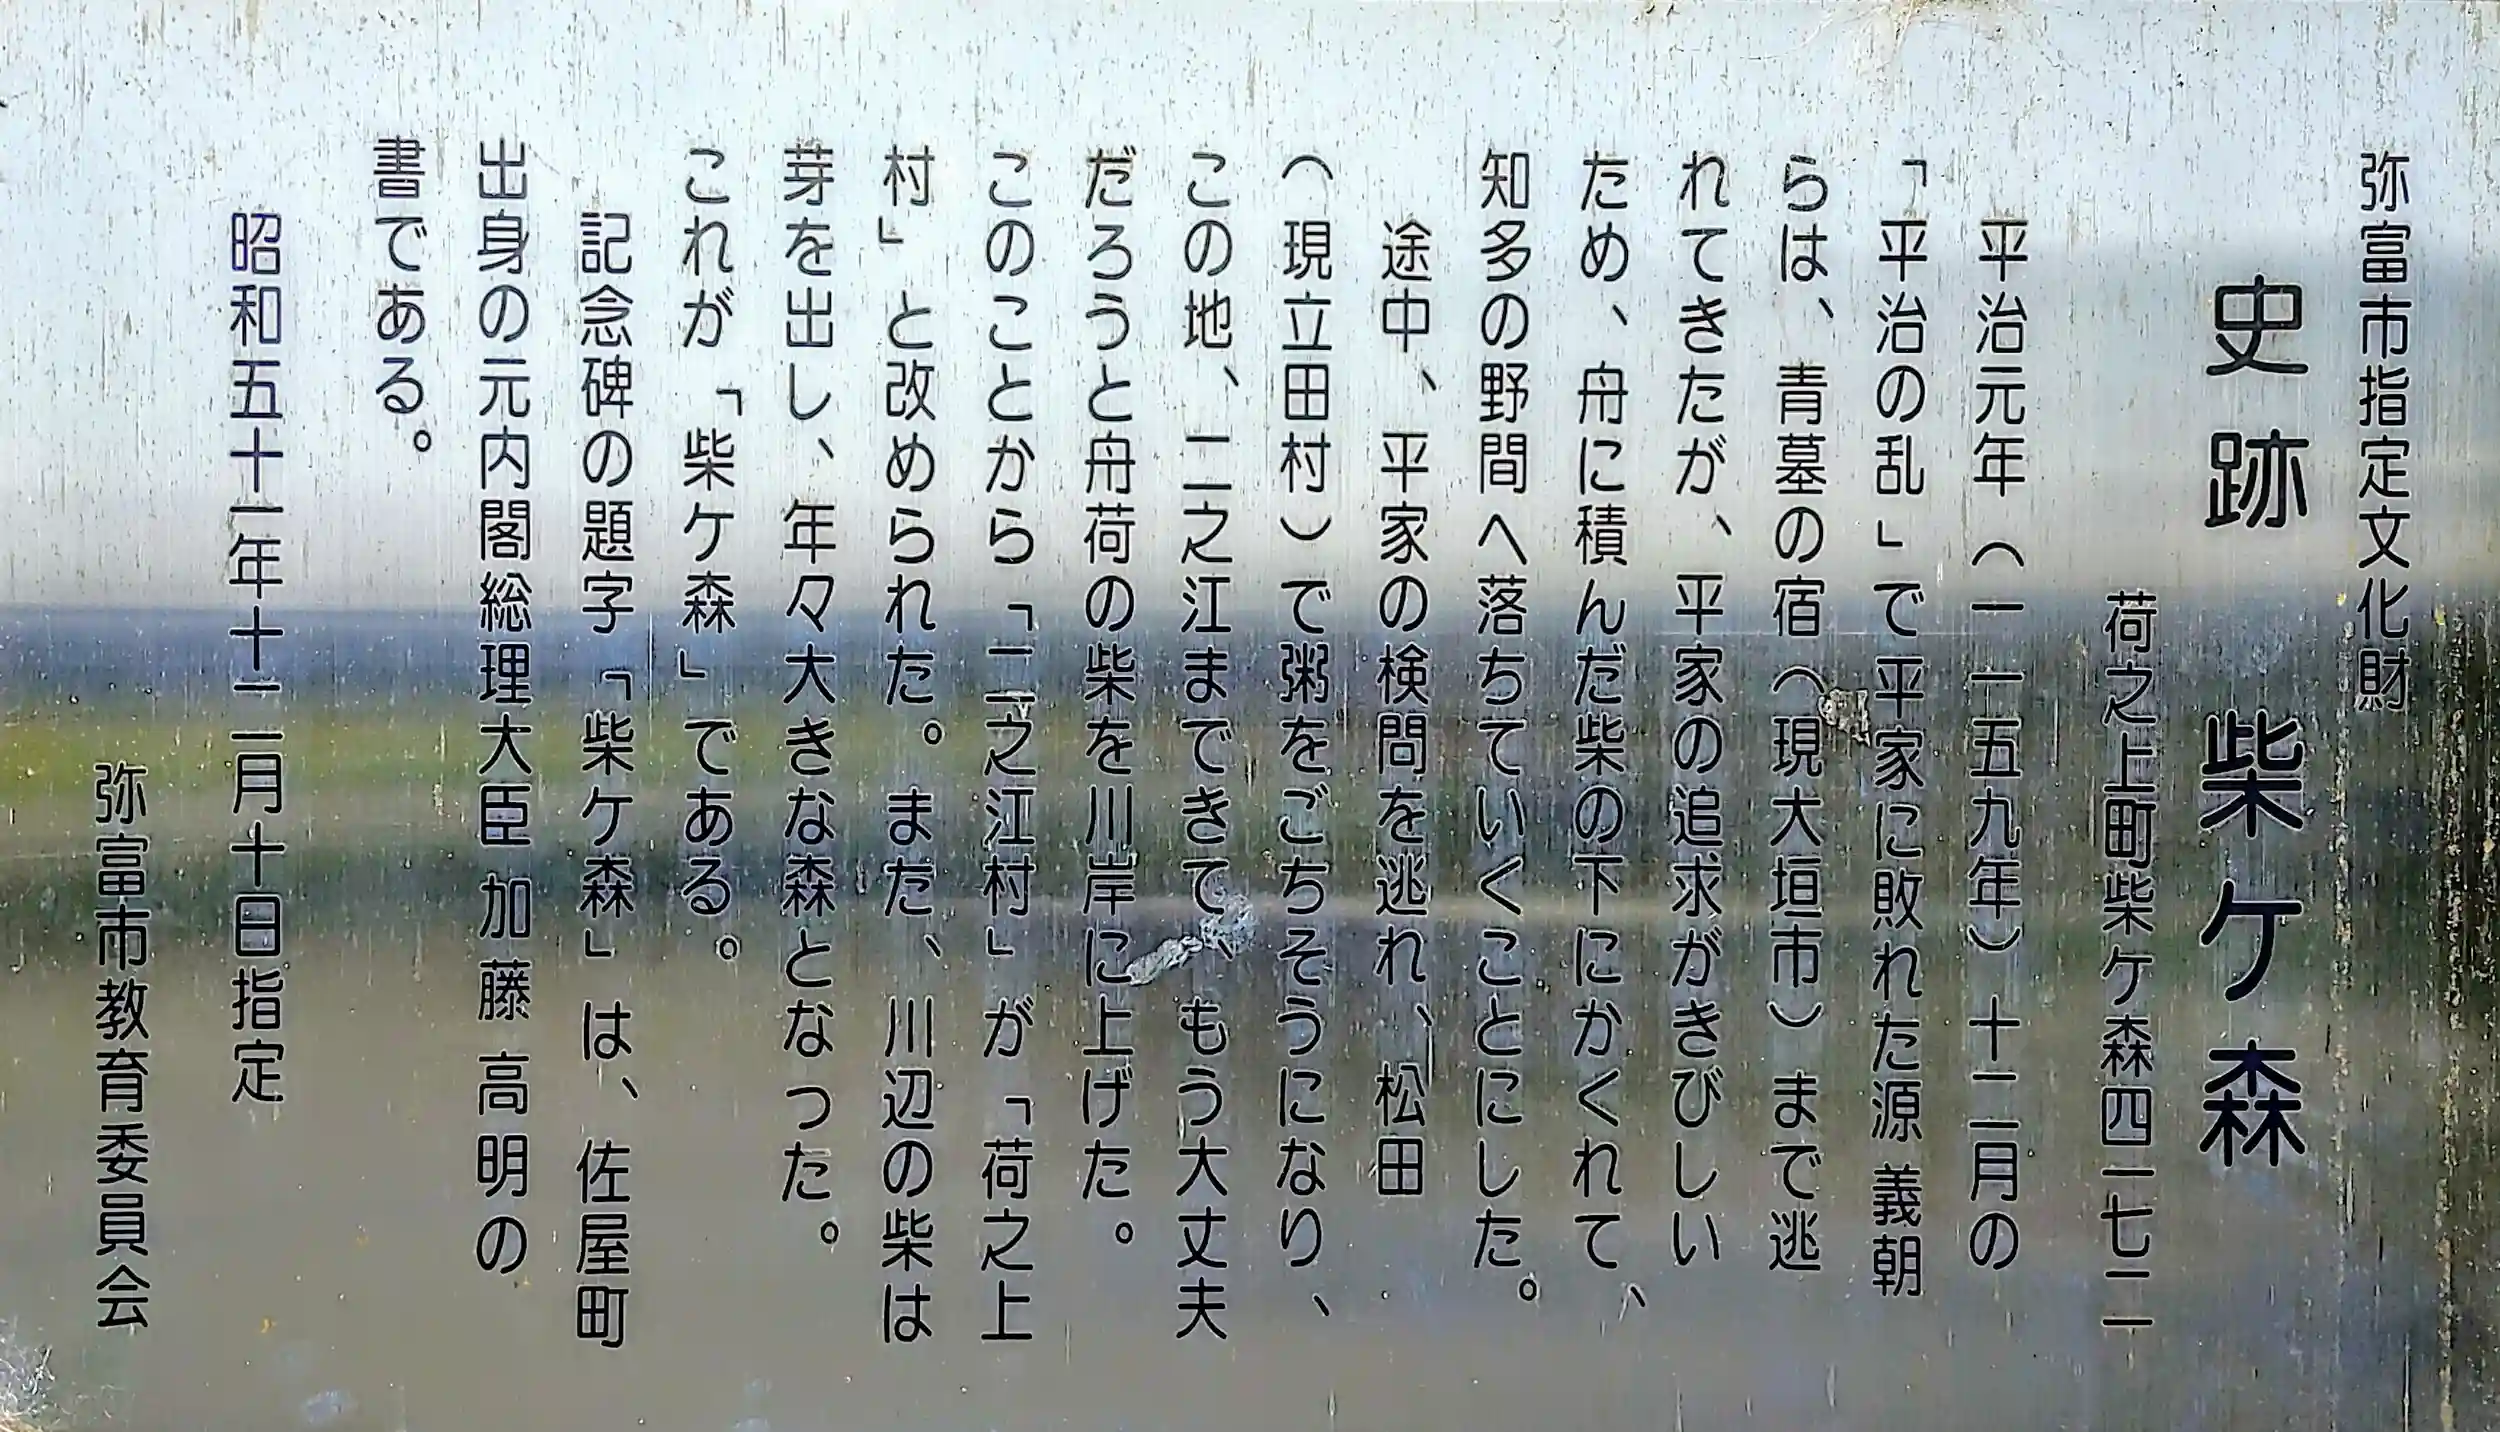 弥富市指定文化財
史跡 柴ケ森
荷之上町柴ケ森四一七二
平治元年（一一五九年）十二月の
「平治の乱」で平家に敗れた源 義朝
らは、青墓の宿（現大垣市）まで逃
れてきたが、平家の追求がきびしい
ため、舟に積んだ柴の下にかくれて、
知多の野間へ落ちていくことにした。
途中、平家の検問を逃れ、松田
（現立田村）で粥をごちそうになり、
この地、二之江まできて、もう大丈夫
だろうと舟荷の柴を川岸に上げた。
このことから「二之江村」が「荷之上
村」と改められた。また、川辺の柴は
芽を出し、年々大きな森となった。
これが「柴ケ森」である。
記念碑の題字「柴ケ森」は、佐屋町
出身の元内閣総理大臣 加藤 高明の
書である。
昭和五十一年十二月十日指定
弥富市教育委員会